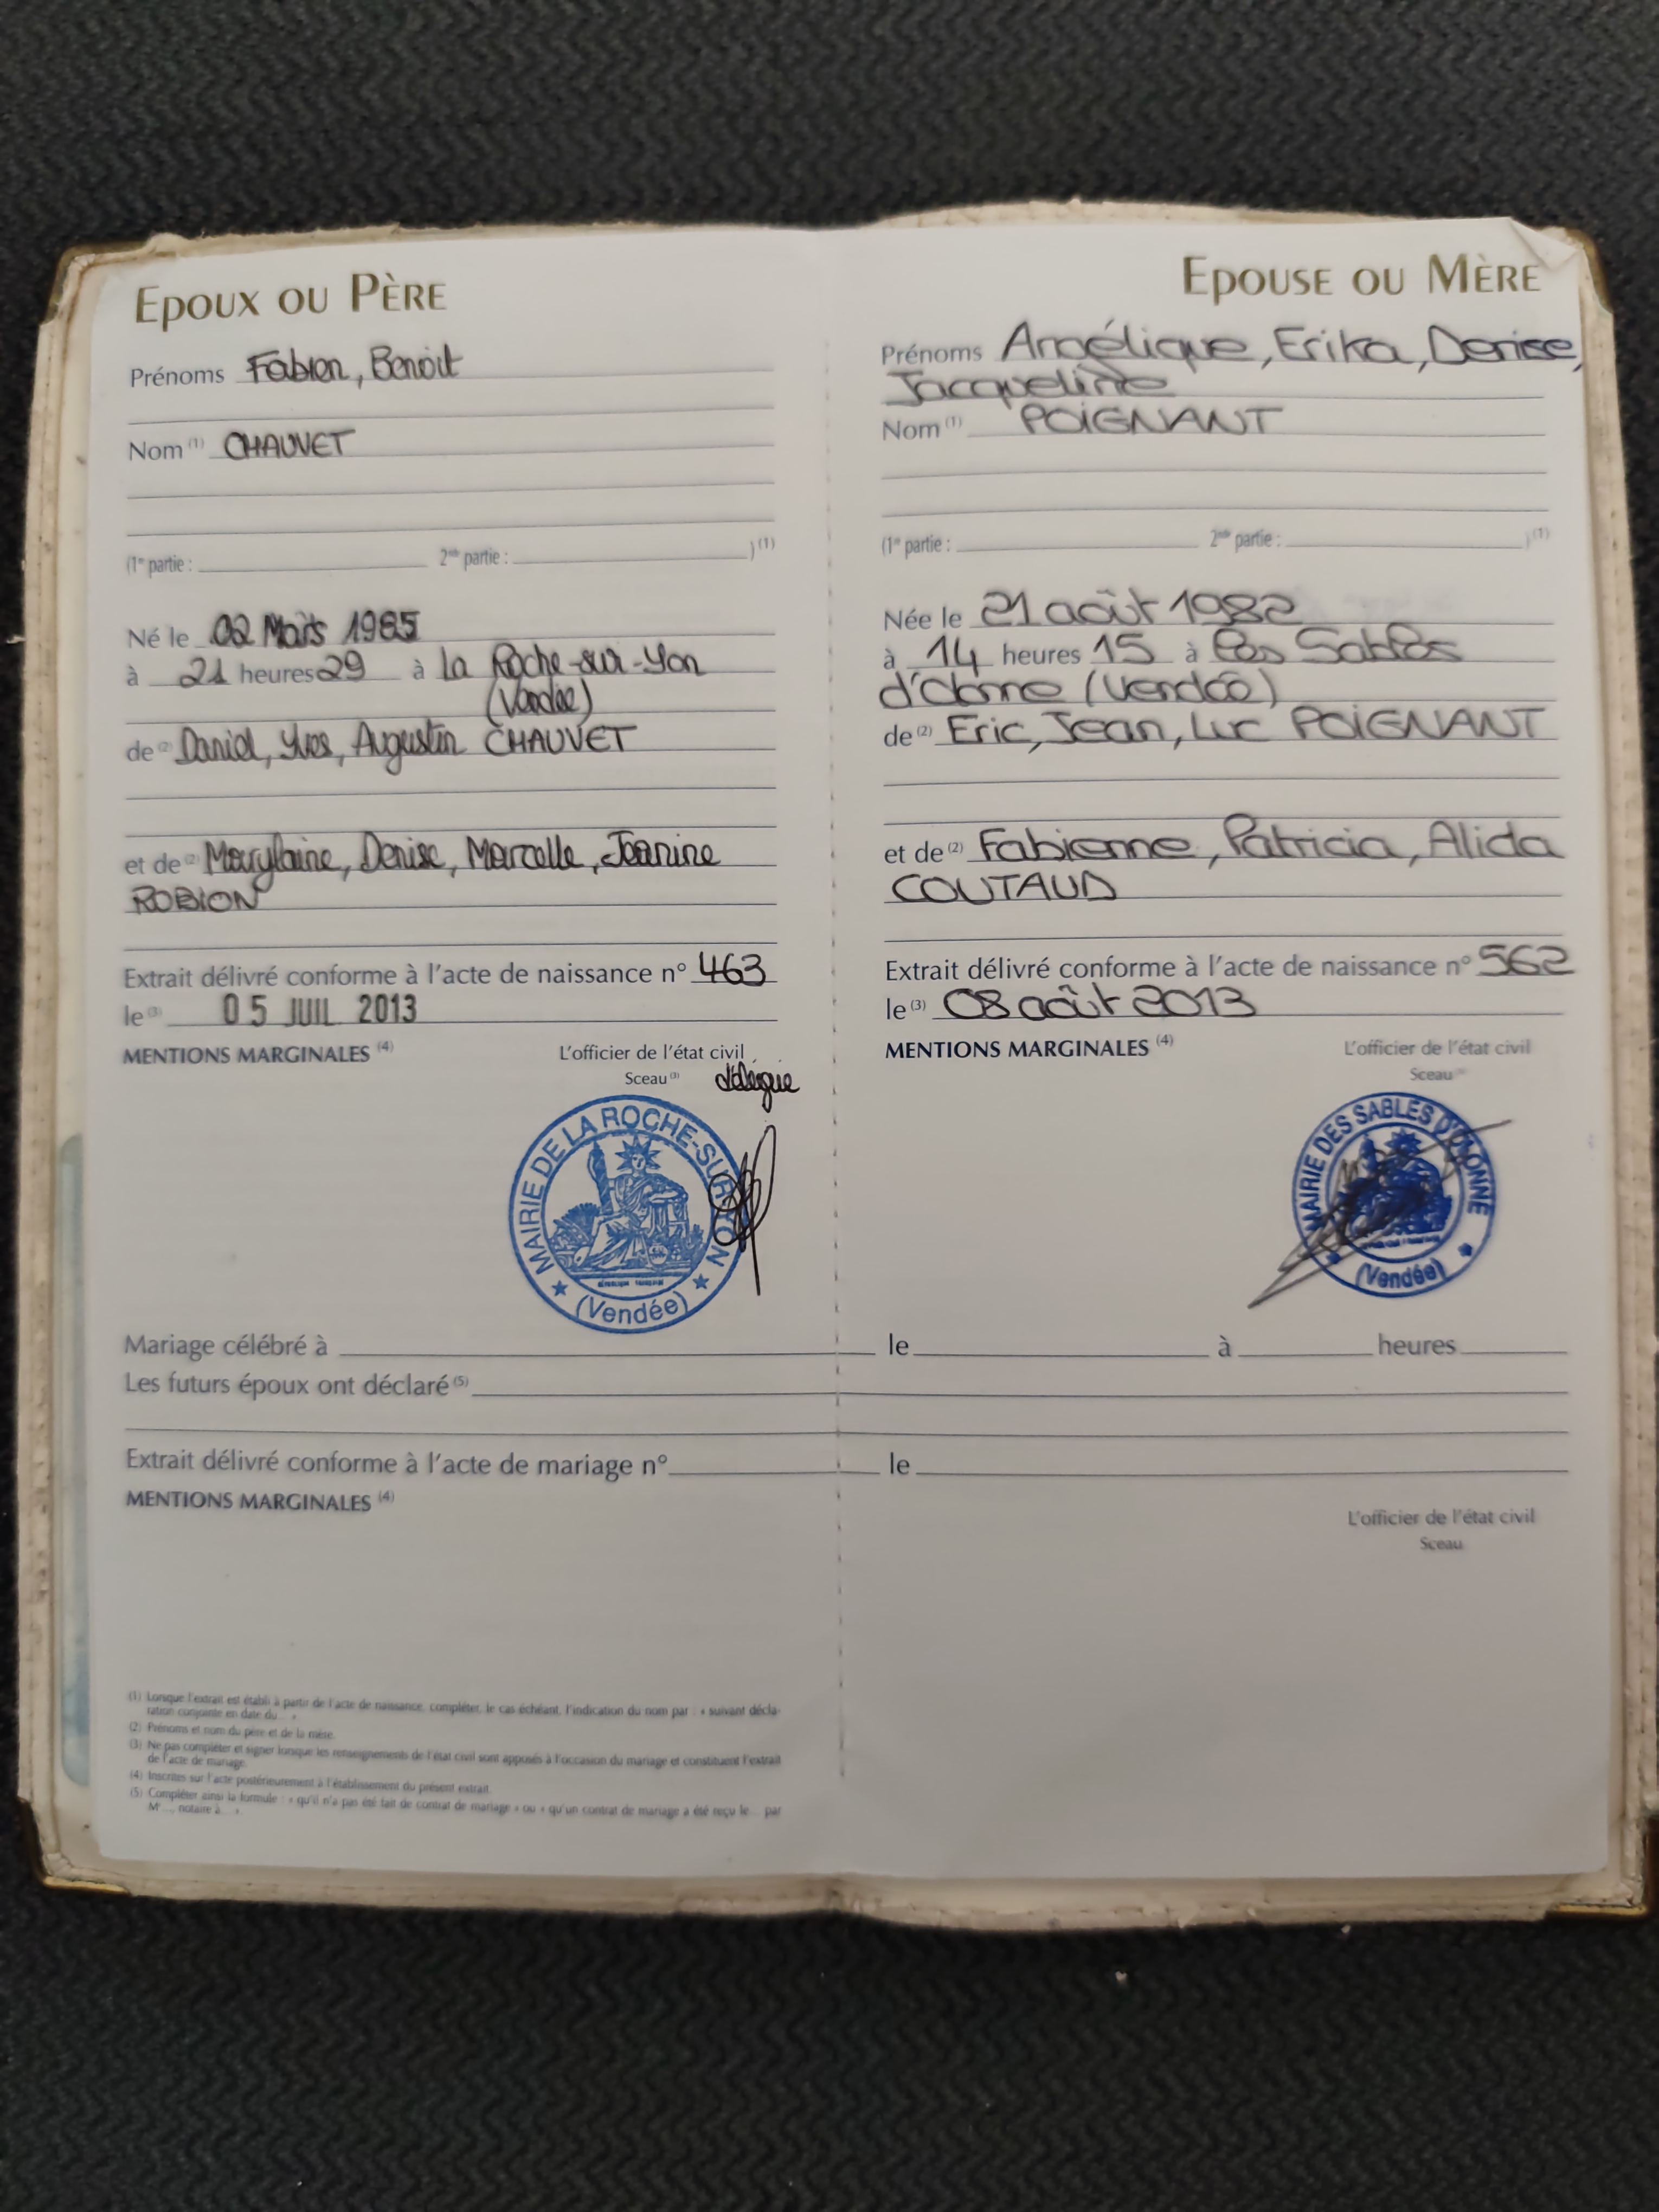 EPOUX OU PÈRE
Prénoms Fabien, Benoit
Nom (1) CHAUVET
(1re partie : 2nde partie : ) (1)
Né le 02 Mars 1985
à 21 heures 29 à La Roche-sur-Yon
(Vendée)
de (2) Daniel, Yves, Augustin CHAUVET
et de (2) Marylaine, Denise, Marcelle, Jeanine
ROBION
Extrait délivré conforme à l'acte de naissance n° 463
le (3) 05 JUIL 2013
MENTIONS MARGINALES (4)
L'officier de l'état civil
Sceau (3) délégué
MAIRIE DE LA ROCHE-SUR-YON
(Vendée)
EPOUSE OU MÈRE
Prénoms Angélique, Erika, Denise,
Jacqueline
Nom (1) POIGNANT
(1re partie : 2nde partie : ) (1)
Née le 21 août 1982
à 14 heures 15 à Les Sables
d'Olonne (Vendée)
de (2) Eric, Jean, Luc POIGNANT
et de (2) Fabienne, Patricia, Alida
COUTAUD
Extrait délivré conforme à l'acte de naissance n° 562
le (3) 08 août 2013
MENTIONS MARGINALES (4)
L'officier de l'état civil
Sceau
MAIRIE DES SABLES D'OLONNE
(Vendée)
Mariage célébré à le à heures
Les futurs époux ont déclaré (5)
Extrait délivré conforme à l'acte de mariage n° le
MENTIONS MARGINALES (4)
L'officier de l'état civil
Sceau
(1) Lorsque l'extrait est établi à partir de l'acte de naissance, compléter, le cas échéant, l'indication du nom par : « suivant décla-
ration conjointe en date du... »
(2) Prénoms et nom du père et de la mère.
(3) Ne pas compléter et signer lorsque les renseignements de l'état civil sont apposés à l'occasion du mariage et constituent l'extrait
de l'acte de mariage.
(4) Inscrites sur l'acte postérieurement à l'établissement du présent extrait.
(5) Compléter ainsi la formule : « qu'il n'a pas été fait de contrat de mariage » ou « qu'un contrat de mariage a été reçu le... par
Me..., notaire à... ».